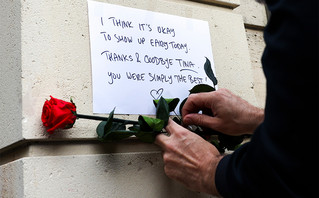 I THINK IT'S OKAY
TO SHOW UP EARLY TODAY.
THANKS & GOODBYE TINA.
YOU WERE SIMPLY THE BEST!